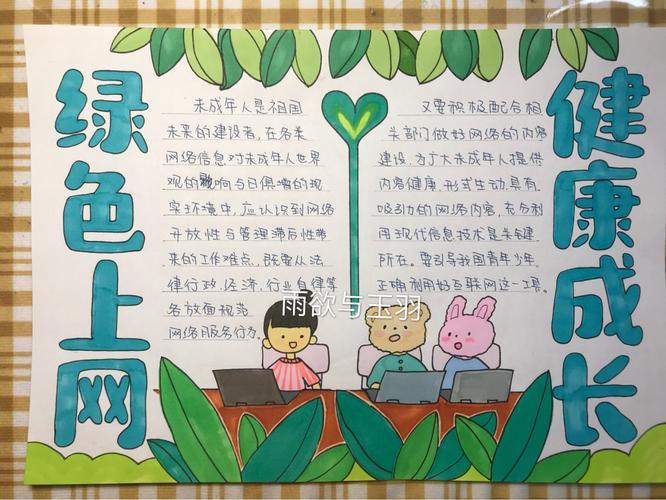 绿色上网
未成年人是祖国
未来的建设者,在各类
网络信息对未成年人世界
观的影响与日俱增的现
实环境中,应认识到网络
开放性与管理滞后性带
来的工作难点,既要从法
律行政、经济,行业自律等
各放面规范
网络服务行为。
又要积极配合相
头部门做好网络的内容
建设,为广大未成年人提供
内容健康,形式生动,具有
吸引力的网络内容,充分利
用现代信息技术是关键
所在。要引导我国青少年
正确利用好互联网这一工具。
健康成长
雨欲与玉羽